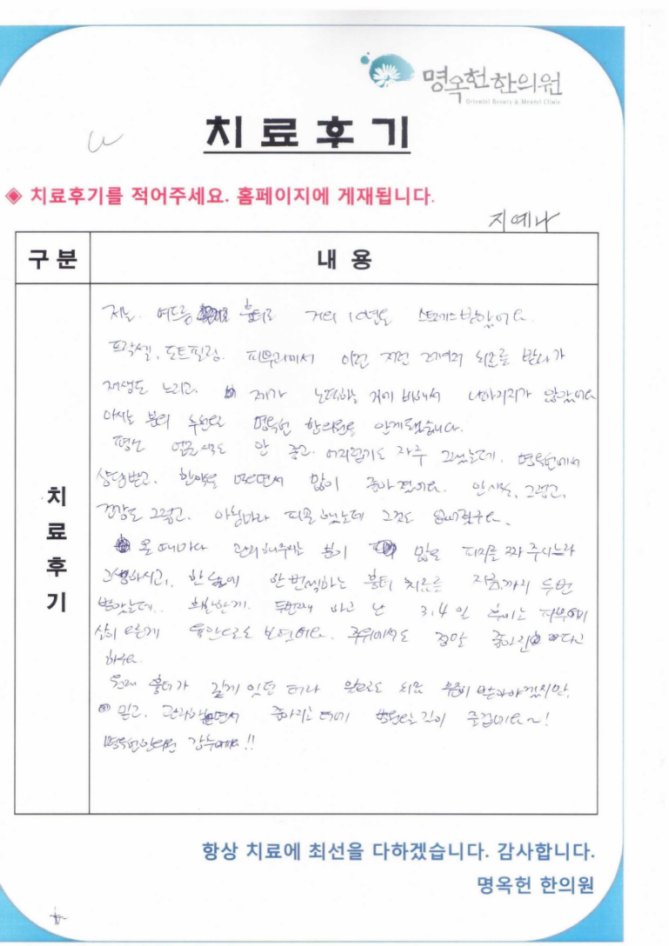 명옥헌한의원
Oriental Beauty & Mental Clinic
치료후기
◈ 치료후기를 적어주세요. 홈페이지에 게재됩니다.
지예나
구분 내용
치료후기
저는 여드름 흉터로 거의 10년을 스트레스받았어요.
프락셀, 도트필링. 피부과에서 이런 저런 고가의 치료를 받다가
재생도 느리고, 제가 노력하는 거에 비해서 나아지지가 않았어요
아시는 분의 추천으로 명옥헌 한의원을 알게됐습니다.
평소 얼굴색도 안 좋고. 어지럽기도 자주 그랬는데, 명옥헌에서
상담받고. 한약을 먹으면서 많이 좋아졌어요. 안색도, 그렇고,
건강도 그렇고. 아침마다 피곤했는데 그것도 없어졌구요.
올 때마다 관리해주시는 분이 많은 피지를 짜 주시느라
고생하시고, 한달에 한번씩하는 흉터 치료를 지금까지 두번
받았는데. 두번째 하고 난 3,4일 후에는 피부에
다르게 육안으로도 보였어요. 주위에서도 정말 좋아진다고
하구요
흉터가 깊게 있던 터라 앞으로도 치료 받아야겠지만,
믿고. 관리받으면서 좋아지는
명옥헌한의원 감사해요!!
항상 치료에 최선을 다하겠습니다. 감사합니다.
명옥헌 한의원